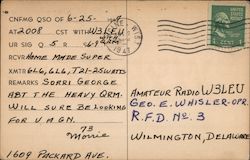 CNFMG QSO OF 6-25-
AT 2008 CST WITH W3LEU
UR SIG Q 5 R
RCVR HOME MADE SUPER
XMTR 6L6, 6L6, T21-25WATTS
REMARKS SORRI GEORGE
ABT THE HEAVY QRM.
WILL SURE BE LOOKING
FOR U AGN.
73
Morrie
1609 PACKARD AVE.
WIS
1947
AMATEUR RADIO W3LEU
GEO. E. WHISLER-OPR.
R.F.D. No. 3
WILMINGTON, DELAWARE